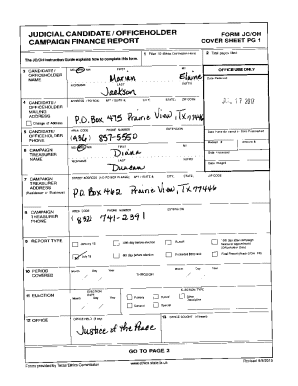 JUDICIAL CANDIDATE / OFFICEHOLDER
CAMPAIGN FINANCE REPORT
FORM JC/OH
COVER SHEET PG 1
The JC/OH Instruction Guide explains how to complete this form.
1 Filer ID
2 Total pages filed:
3 CANDIDATE /
OFFICEHOLDER
NAME
FIRST
MI
Marian
Elaine
NICKNAME
LAST
SUFFIX
Jackson
OFFICE USE ONLY
Date Received
4 CANDIDATE /
OFFICEHOLDER
MAILING
ADDRESS
Change of Address
ADDRESS / PO BOX;
APT / SUITE #;
CITY;
STATE;
ZIP CODE
P.O. Box 475 Prairie View, Tx 77446
5 CANDIDATE/
OFFICEHOLDER
PHONE
AREA CODE
PHONE NUMBER
EXTENSION
(936) 857-5550
6 CAMPAIGN
TREASURER
NAME
FIRST
MI
Diana
NICKNAME
LAST
SUFFIX
Duncan
7 CAMPAIGN
TREASURER
ADDRESS
(Residence or Business)
CITY;
STATE;
ZIP CODE
P.O. Box 462 Prairie View, Tx 77446
8 CAMPAIGN
TREASURER
PHONE
AREA CODE
PHONE NUMBER
EXTENSION
741-2391
9 REPORT TYPE
January 15
30th day before election
Runoff
July 15
8th day before election
10 PERIOD
COVERED
Month
Day
Year
THROUGH
Month
Day
Year
11 ELECTION
ELECTION DATE
Month
Day
Year
ELECTION TYPE
Primary
Runoff
Other
General
Special
12 OFFICE
OFFICE HELD (if any)
Justice of the Peace
13 OFFICE SOUGHT (if known)
GO TO PAGE 2
Forms provided by Texas Ethics Commission
www.ethics.state.tx.us